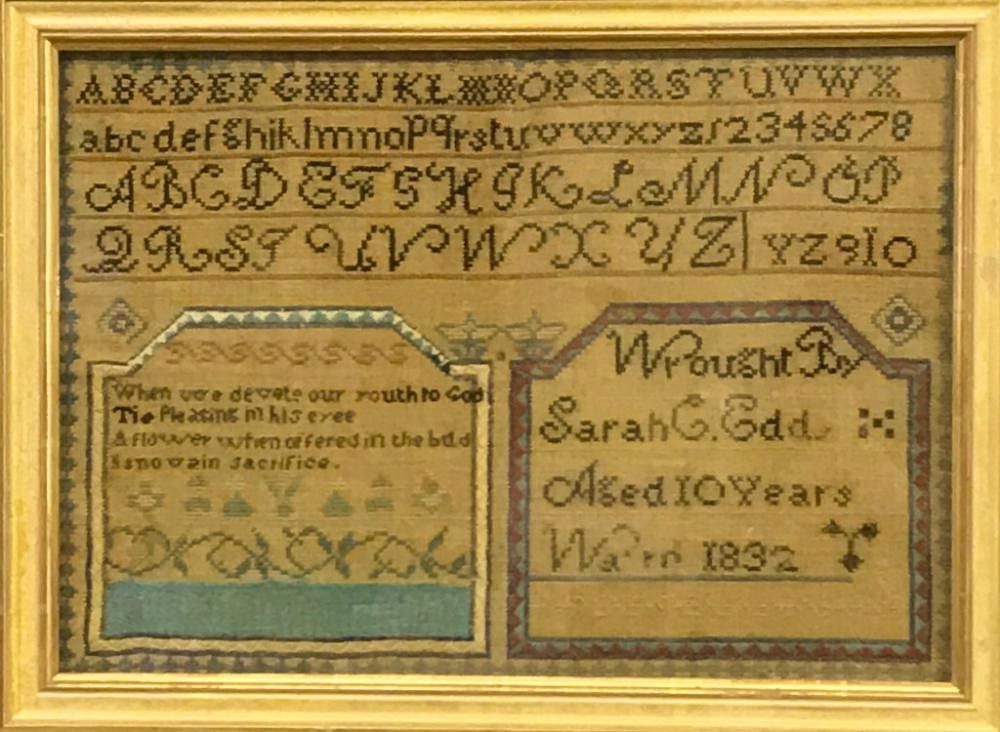 ABCDEFGHIJKLMNOPQRSTUVWX
abcdefghiklmnopqrstuvwxyz12345678
ABCDEFGHIJKLMNOP
QRSTUVWXYZ YZ910
When we devote our youth to God
Tis Pleasing in his eyee
A flower when offered in the bud
Is no vain sacrifice.
Wrought By
Sarah C. Edd
Aged 10 Years
1832